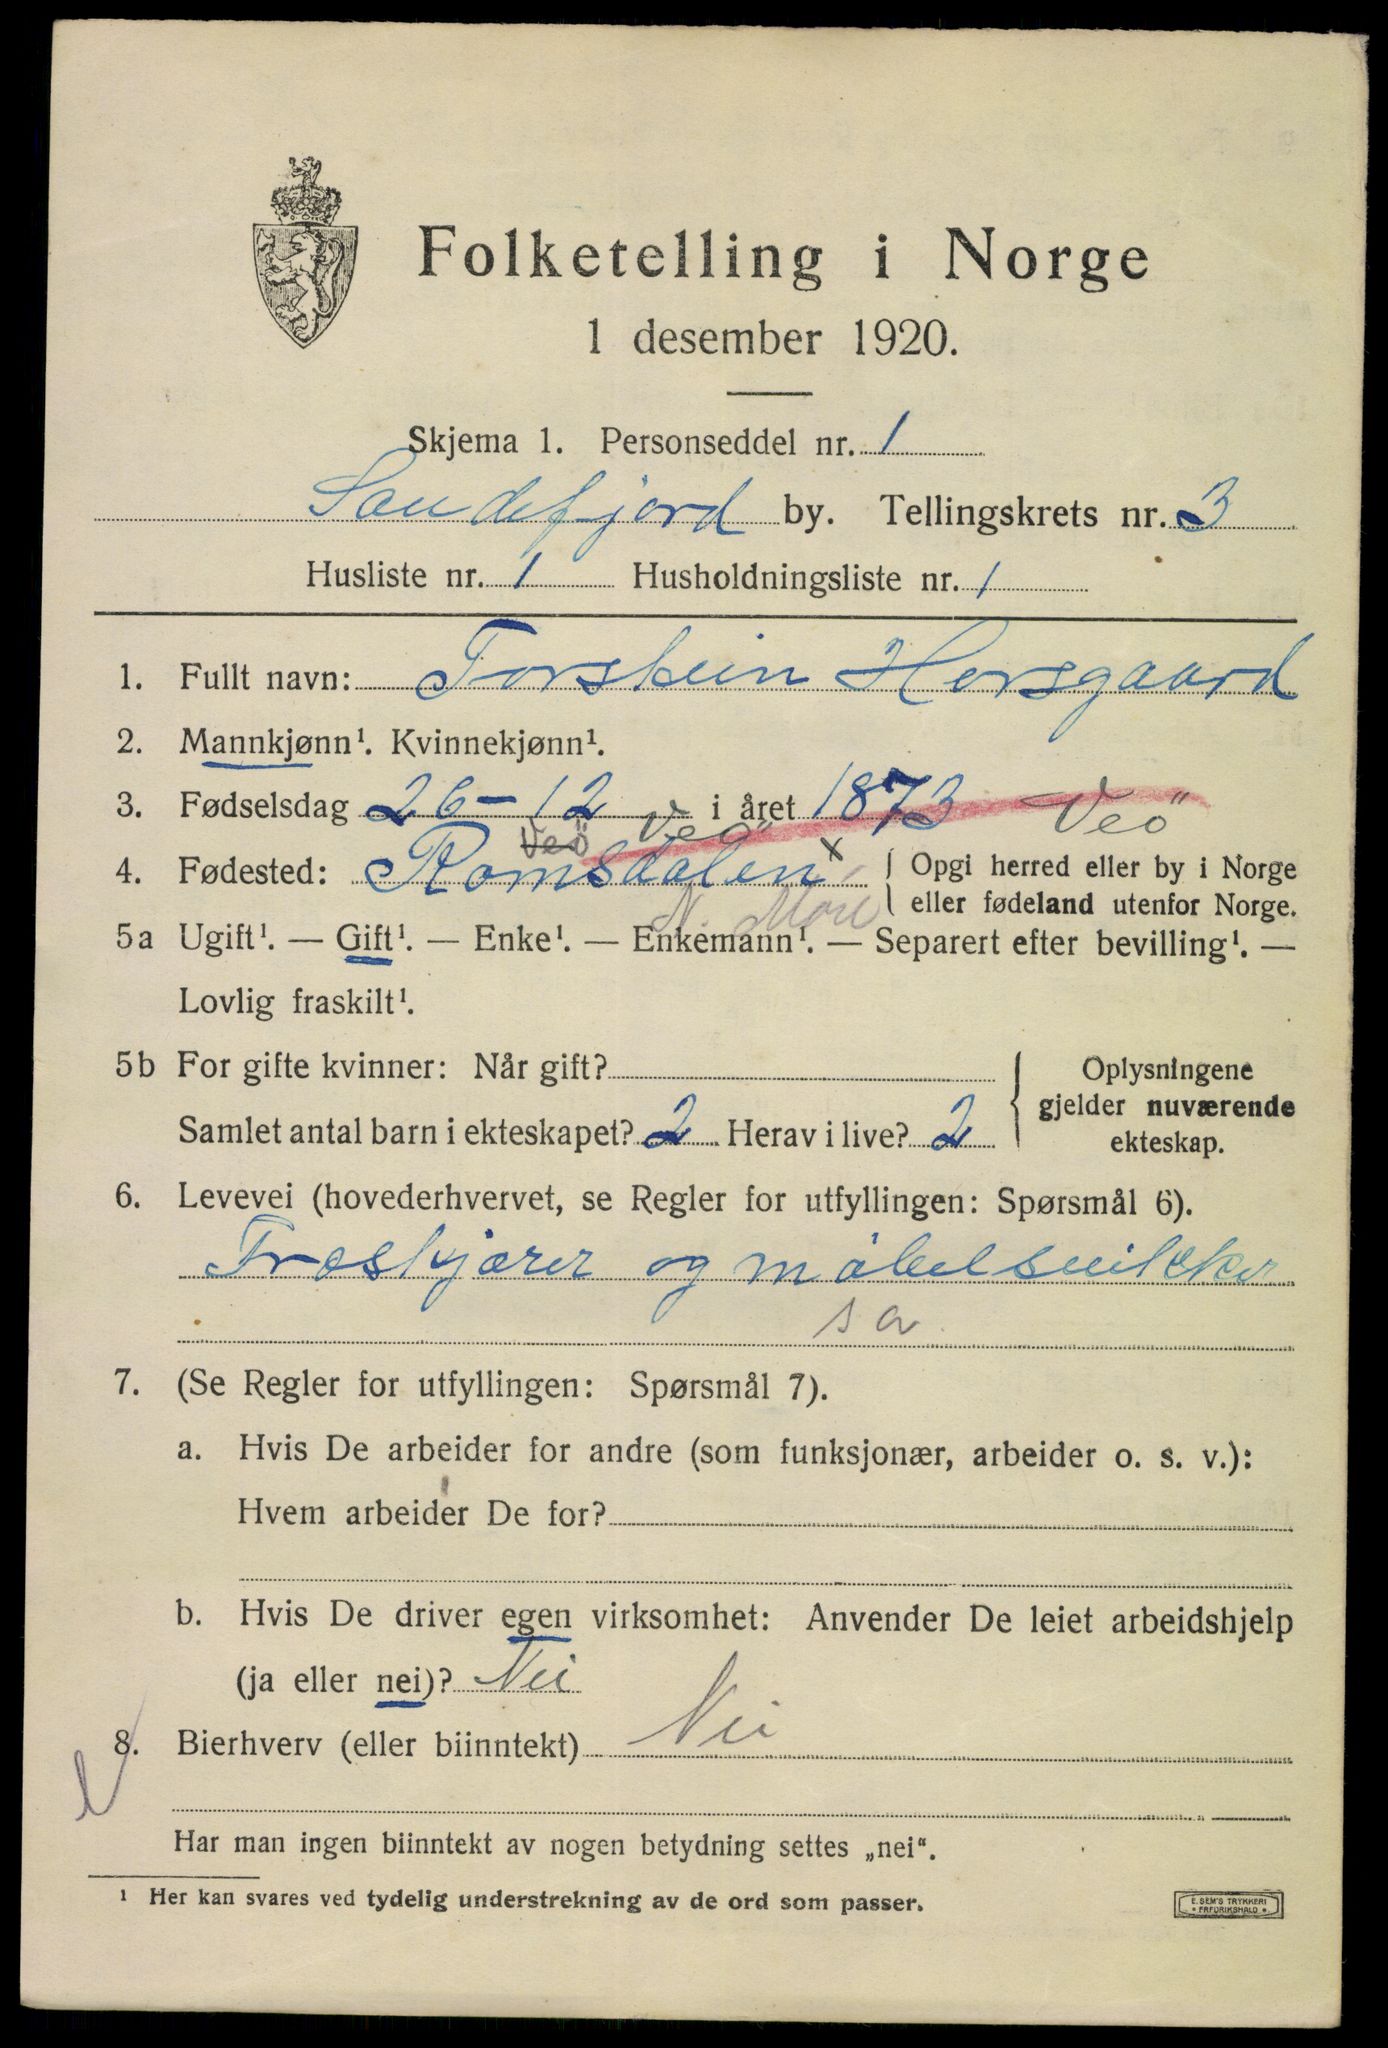 Folketelling i Norge
1 desember 1920.
Skjema 1. Personseddel nr. 1
Sandefjord by. Tellingskrets nr. 3
Husliste nr. 1 Husholdningsliste nr. 1
1. Fullt navn: Torstein Horsgaard
2. Mannkjønn¹. Kvinnekjønn¹.
3. Fødselsdag 26-12 i året 1873 Veö
Veö Veö
4. Fødested: Romsdalen x { Opgi herred eller by i Norge
eller fødeland utenfor Norge.
N. Møre
5a Ugift¹. — Gift¹. — Enke¹. — Enkemann¹. — Separert efter bevilling¹. —
Lovlig fraskilt¹.
5b For gifte kvinner: Når gift? { Oplysningene
gjelder nuværende
Samlet antal barn i ekteskapet? 2 Herav i live? 2 ekteskap.
6. Levevei (hovederhvervet, se Regler for utfyllingen: Spørsmål 6).
Træskjærer og møbelsnikker
sa.
7. (Se Regler for utfyllingen: Spørsmål 7).
a. Hvis De arbeider for andre (som funksjonær, arbeider o. s. v.):
Hvem arbeider De for?
b. Hvis De driver egen virksomhet: Anvender De leiet arbeidshjelp
(ja eller nei)? Nei
8. Bierhverv (eller biinntekt) Nei
Har man ingen biinntekt av nogen betydning settes „nei".
¹ Her kan svares ved tydelig understrekning av de ord som passer.
E. SEM'S TRYKKERI
FREDRIKSHALD